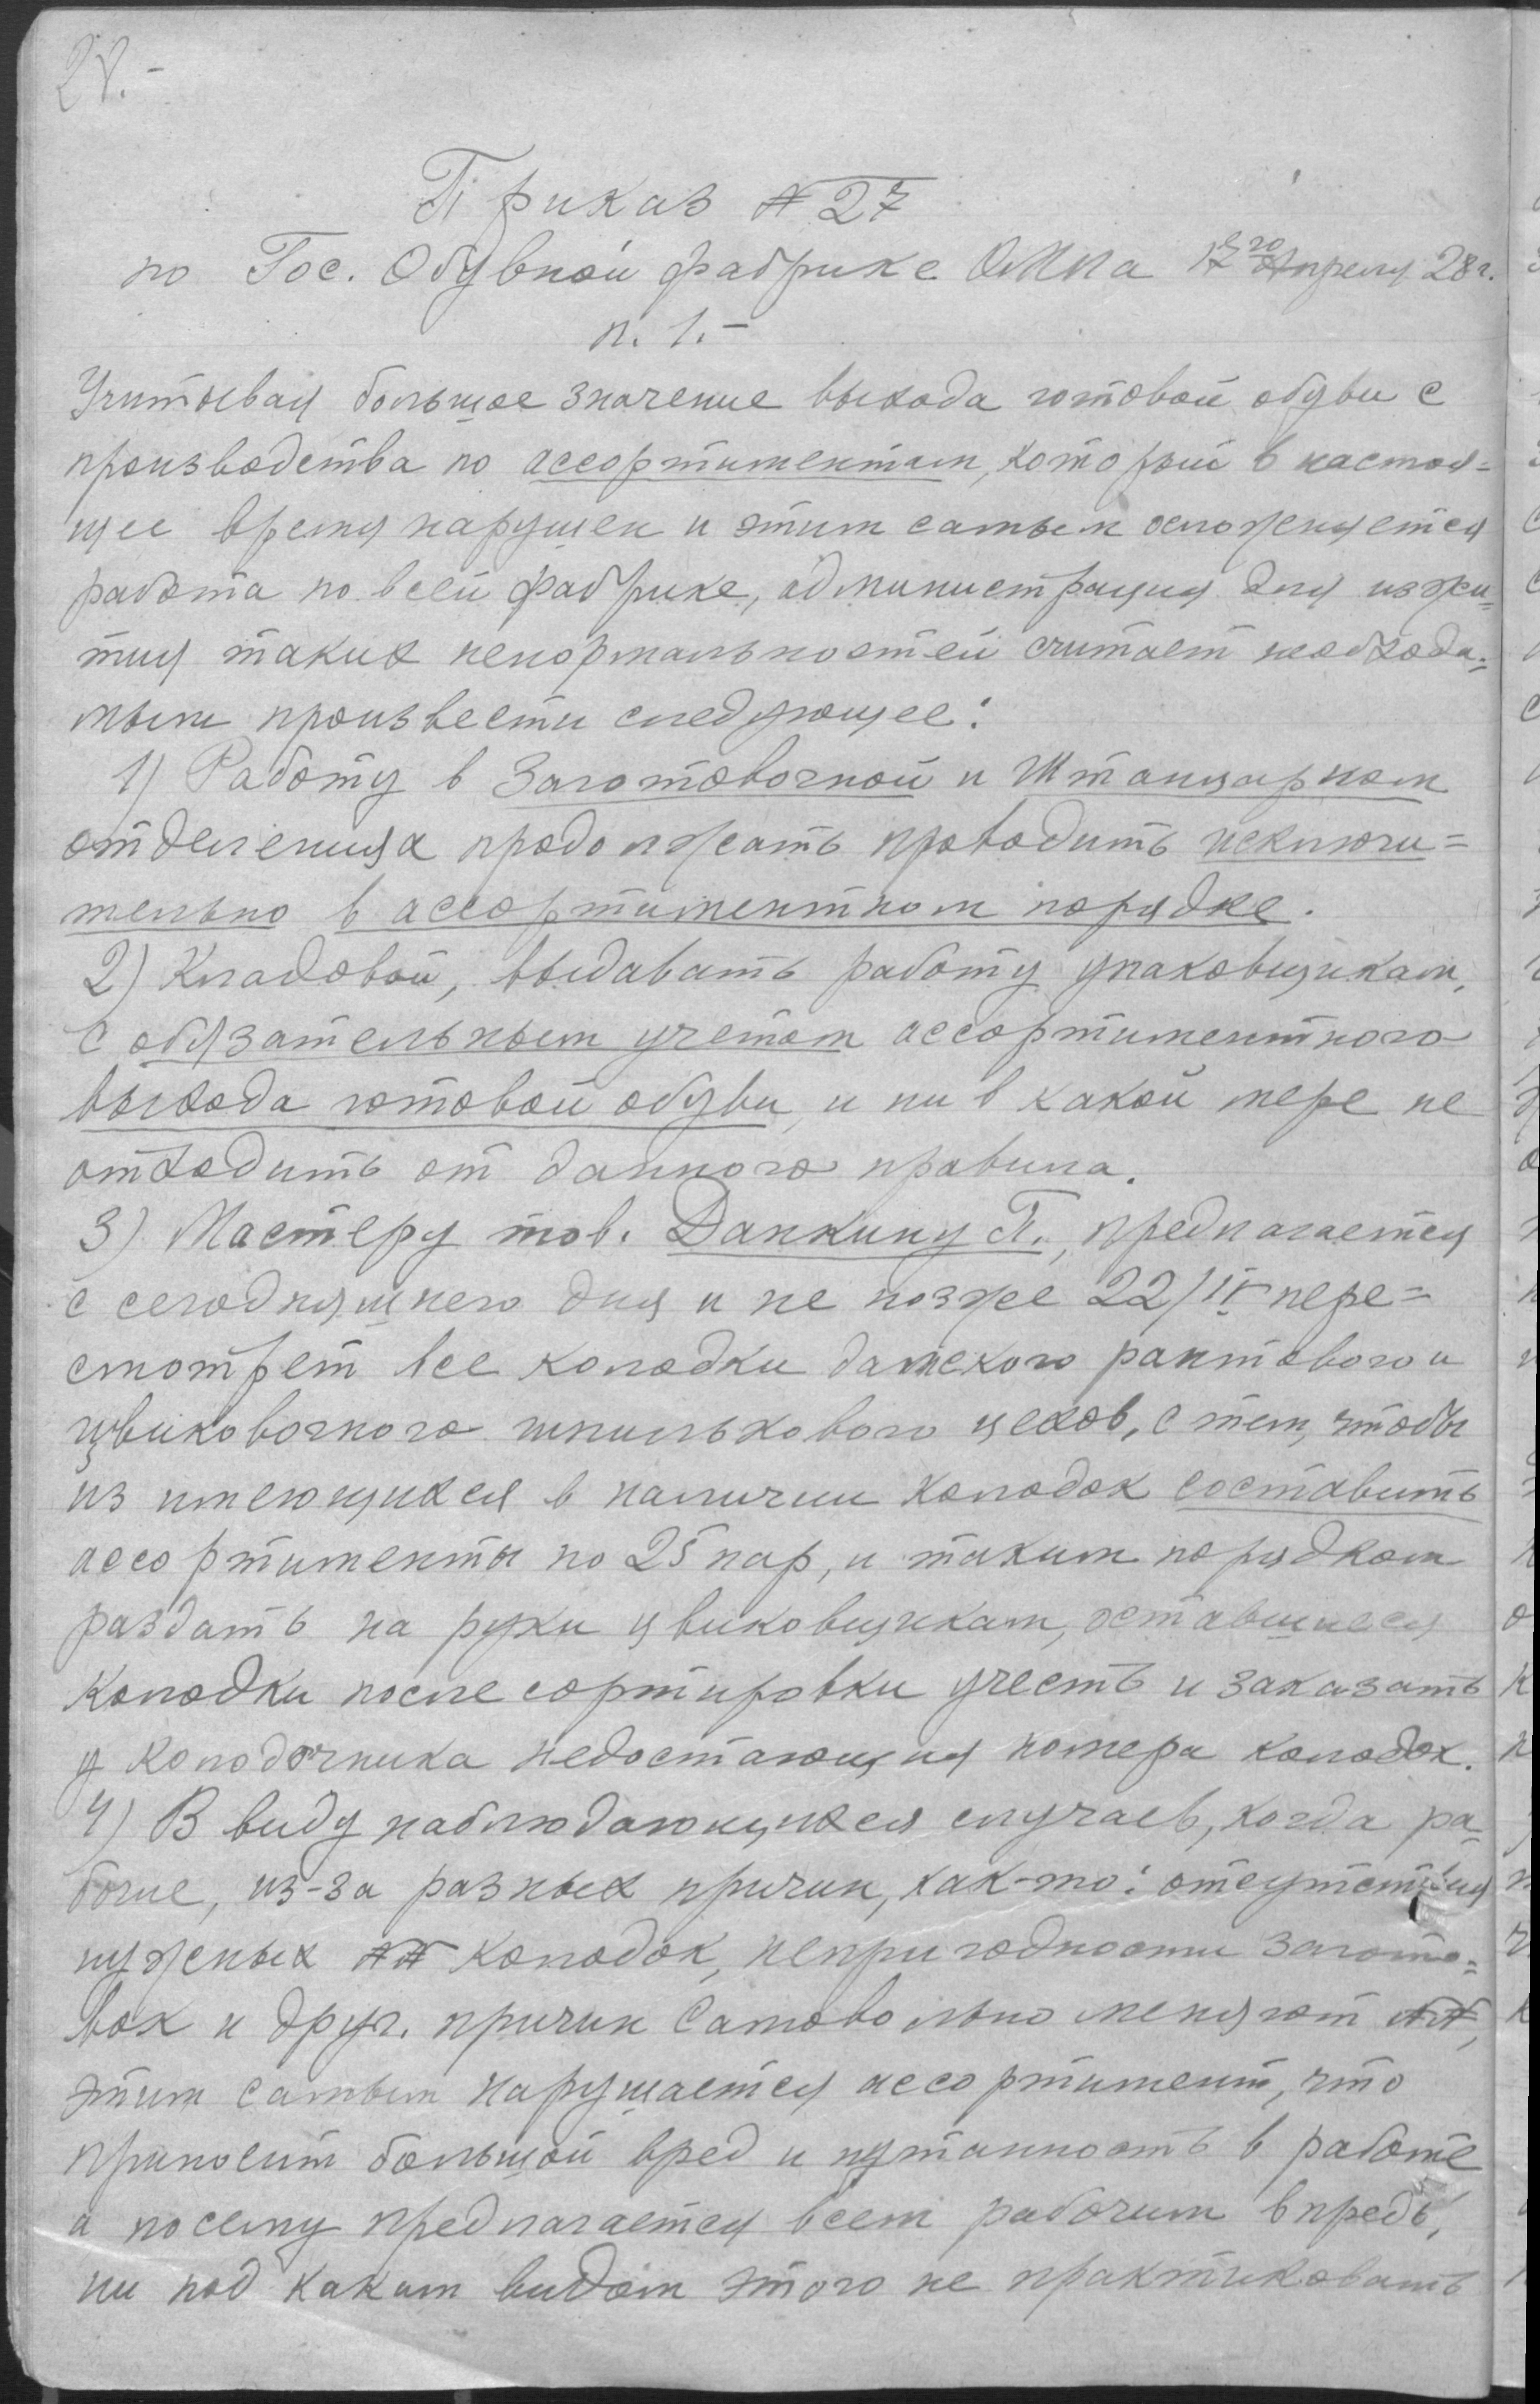 28.-
Приказ № 27
по Гос. Обувной фабрике Апреля 28 г.
п. 1.-
Учитывая большое значение выхода готовой обуви с
производства по ассортиментам, который в настоя=
щее время нарушен и этим самым осложняется
работа по всей фабрике, администрация для изжи=
тия таких ненормальностей считает необходи=
мым произвести следующее:
1) Работу в Заготовочной и Штанцарном
отделениях продолжать проводить исключи=
тельно в ассортиментном порядке.
2) Кладовой, выдавать работу упаковщикам,
с обязательным учетом ассортиментного
выхода готовой обуви, и ни в какой мере не
отходить от данного правила.
3) Мастеру тов. Данкину П., предлагается
с сегодняшнего дня и не позже 22/IV пере=
смотрет все колодки дамского рантового и
цвиковочного шпилькового цехов, с тем, чтобы
из имеющихся в наличии колодок составить
ассортименты по 25 пар, и таким порядком
раздать на руки цвиковщикам, оставшиеся
колодки после сортировки учесть и заказать
у колодочника недостающия номера колодок.
4) В виду наблюдающихся случаев, когда ра=
бочие, из-за разных причин, как-то: отсутствия
нужных №№ колодок, непригодности загото=
вок и друг. причин самовольно меняют №№,
этим самым нарушается ассортимент, что
приносит большой вред и путанность в работе
а посему предлагается всем рабочим впредь,
ни под каким видом этого не практиковать